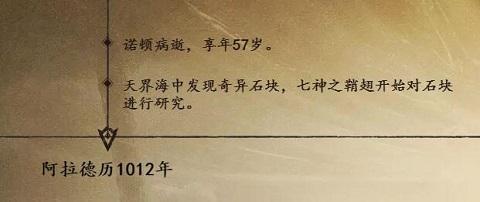 诺顿病逝，享年57岁。
天界海中发现奇异石块，七神之鞘翅开始对石块
进行研究。
阿拉德历1012年